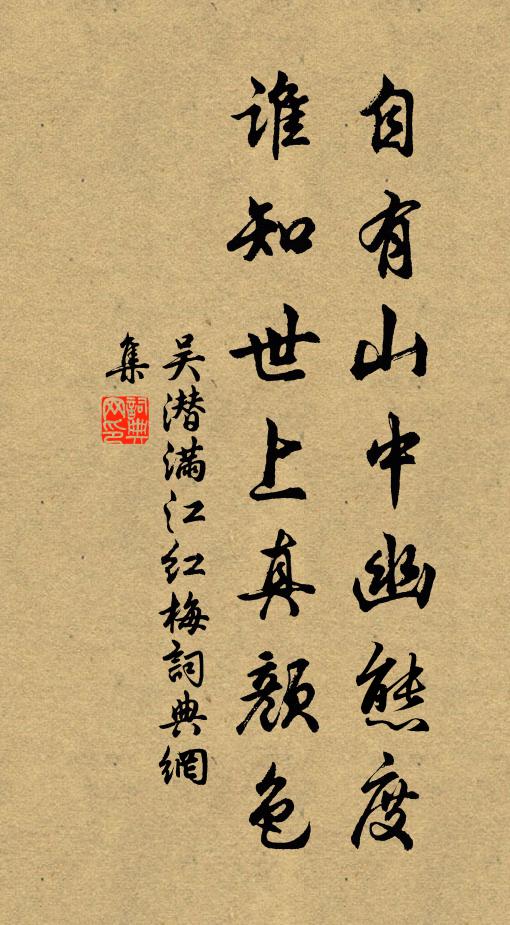 自有山中幽態度
谁知世上真颜色
吴潜满江红梅詞典網
集
詞典网印